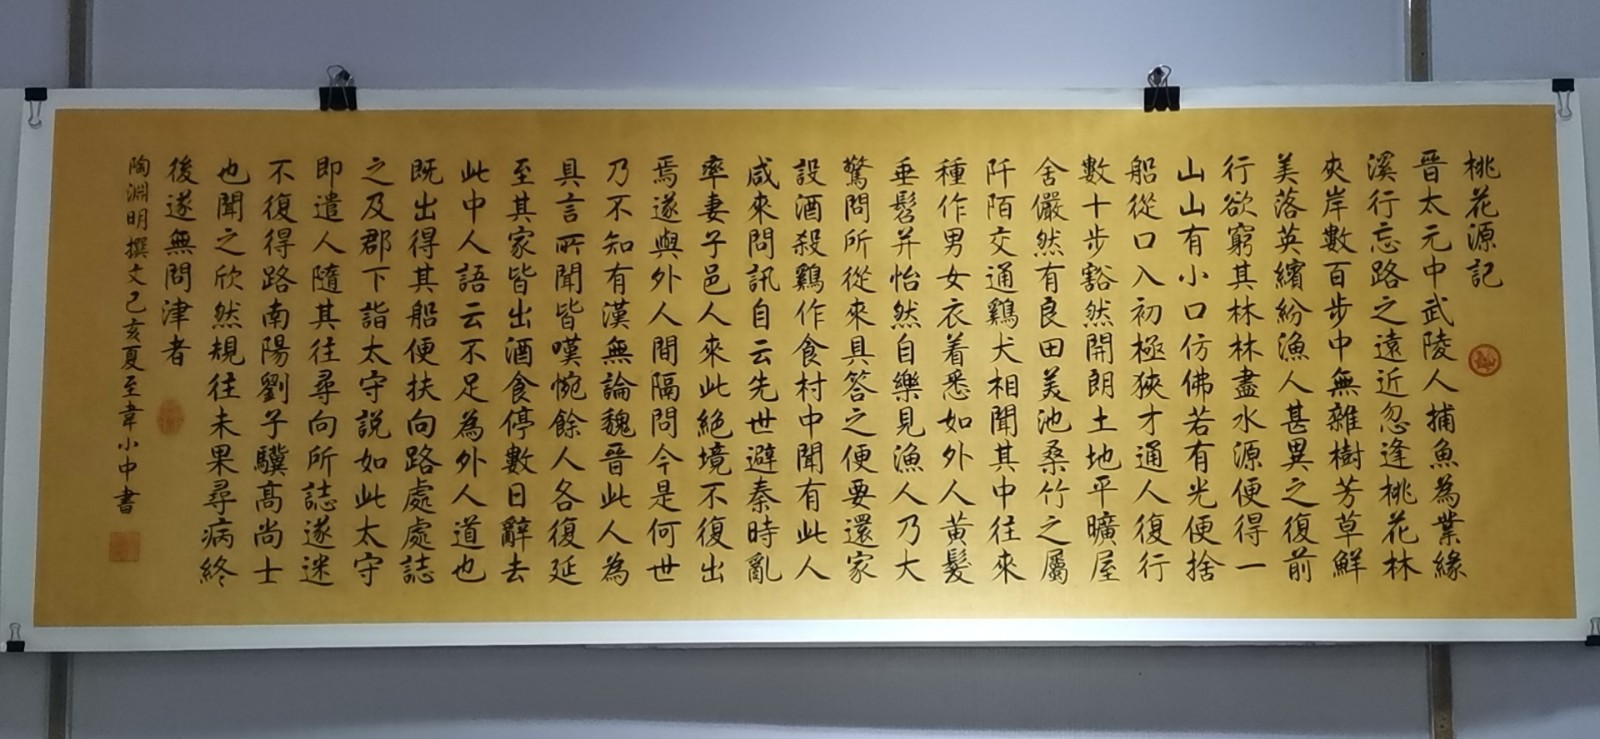 桃花源記
晉太元中武陵人捕魚為業緣
溪行忘路之遠近忽逢桃花林
夾岸數百步中無雜樹芳草鮮
美落英繽紛漁人甚異之復前
行欲窮其林林盡水源便得一
山山有小口仿佛若有光便捨
船從口入初極狹才通人復行
數十步豁然開朗土地平曠屋
舍儼然有良田美池桑竹之屬
阡陌交通鷄犬相聞其中往來
種作男女衣着悉如外人黃髮
垂髫并怡然自樂見漁人乃大
驚問所從來具答之便要還家
設酒殺鷄作食村中聞有此人
咸來問訊自云先世避秦時亂
率妻子邑人來此絕境不復出
焉遂與外人間隔問今是何世
乃不知有漢無論魏晉此人為
具言所聞皆嘆惋餘人各復延
至其家皆出酒食停數日辭去
此中人語云不足為外人道也
既出得其船便扶向路處處誌
之及郡下詣太守説如此太守
即遣人隨其往尋向所誌遂迷
不復得路南陽劉子驥髙尚士
也聞之欣然規往未果尋病終
後遂無問津者
陶淵明撰文己亥夏至韋小中書